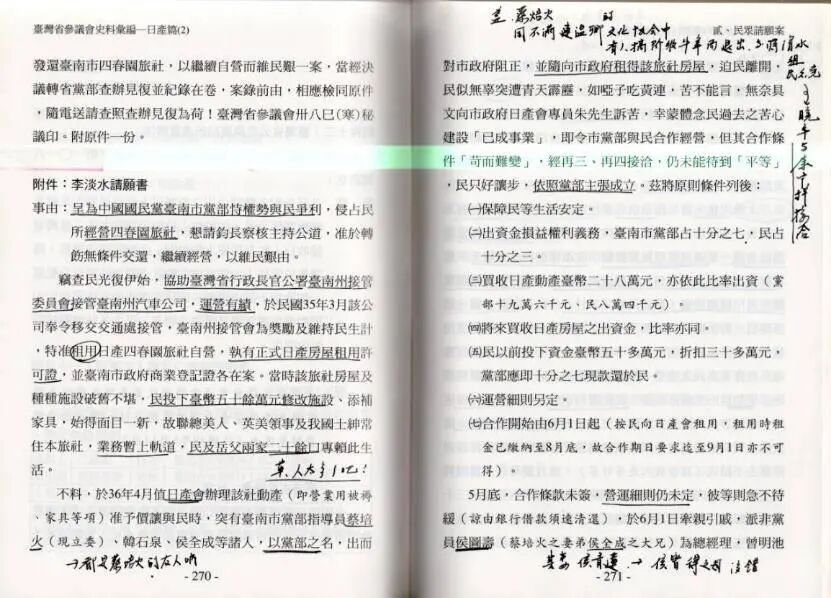 臺灣省參議會史料彙編—日產篇(2)
發還臺南市四春園旅社，以繼續自營而維民艱一案，當經決
議轉省黨部查辦見復並紀錄在卷，案錄前由，相應檢同原件
，隨電送請查照查辦見復為荷！臺灣省參議會卅八巳（寒）秘
議印。附原件一份。
附件：李淡水請願書
事由：呈為中國國民黨臺南市黨部恃權勢與民爭利，侵占民
所經營四春園旅社，懇請鈞長察核主持公道，准於轉
飭無條件交還，繼續經營，以維民艱由。
竊查民光復伊始，協助臺灣省行政長官公署臺南州接管
委員會接管臺南州汽車公司，運營有績，於民國35年3月該公
司奉令移交交通處接管，臺南州接管會為獎勵及維持民生計
，特准租用日產四春園旅社自營，執有正式日產房屋租用許
可證，並臺南市政府商業登記證各在案。當時該旅社房屋及
種種施設破舊不堪，民投下臺幣五十餘萬元修改施設、添補
家具，始得面目一新，故聯總美人、英美領事及我國士紳常
住本旅社，業務暫上軌道，民及岳父兩家二十餘口專賴此生
活。
不料，於36年4月值日產會辦理該社動產（即營業用被褥
、家具等項）准予價讓與民時，突有臺南市黨部指導員蔡培
火（現立委）、韓石泉、侯全成等諸人，以黨部之名，出而
→都是蔡培火的友人
－270－
貳、民眾請願案
對市政府阻正，並隨向市政府租得該旅社房屋，迫民離開，
民似無辜突遭青天霹靂，如啞子吃黃連，苦不能言，無奈具
文向市政府日產會專員朱先生訴苦，幸蒙體念民過去之苦心
建設「已成事業」，即令市黨部與民合作經營，但其合作條
件「苛而難變」，經再三、再四接洽，仍未能待到「平等」
，民只好讓步，依照黨部主張成立。茲將原則條件列後：
㈠保障民等生活安定。
㈡出資金損益權利義務，臺南市黨部占十分之七，民占
十分之三。
㈢買收日產動產臺幣二十八萬元，亦依此比率出資（黨
部十九萬六千元、民八萬四千元）。
㈣將來買收日產房屋之出資金，比率亦同。
㈤民以前投下資金臺幣五十多萬元，折扣三十多萬元，
黨部應即十分之七現款還於民。
㈥運營細則另定。
㈦合作開始由6月1日起（按民向日產會租用，租用時租
金已繳納至8月底，故合作期日要求迄至9月1日亦不可
得）。
5月底，合作條款未簽，營運細則仍未定，彼等則急不待
緩（諒由銀行借款須速清還），於6月1日牽親引戚，派非黨
員侯圖壽（蔡培火之妻弟侯全成之大兄）為總經理，曾明池
－271－